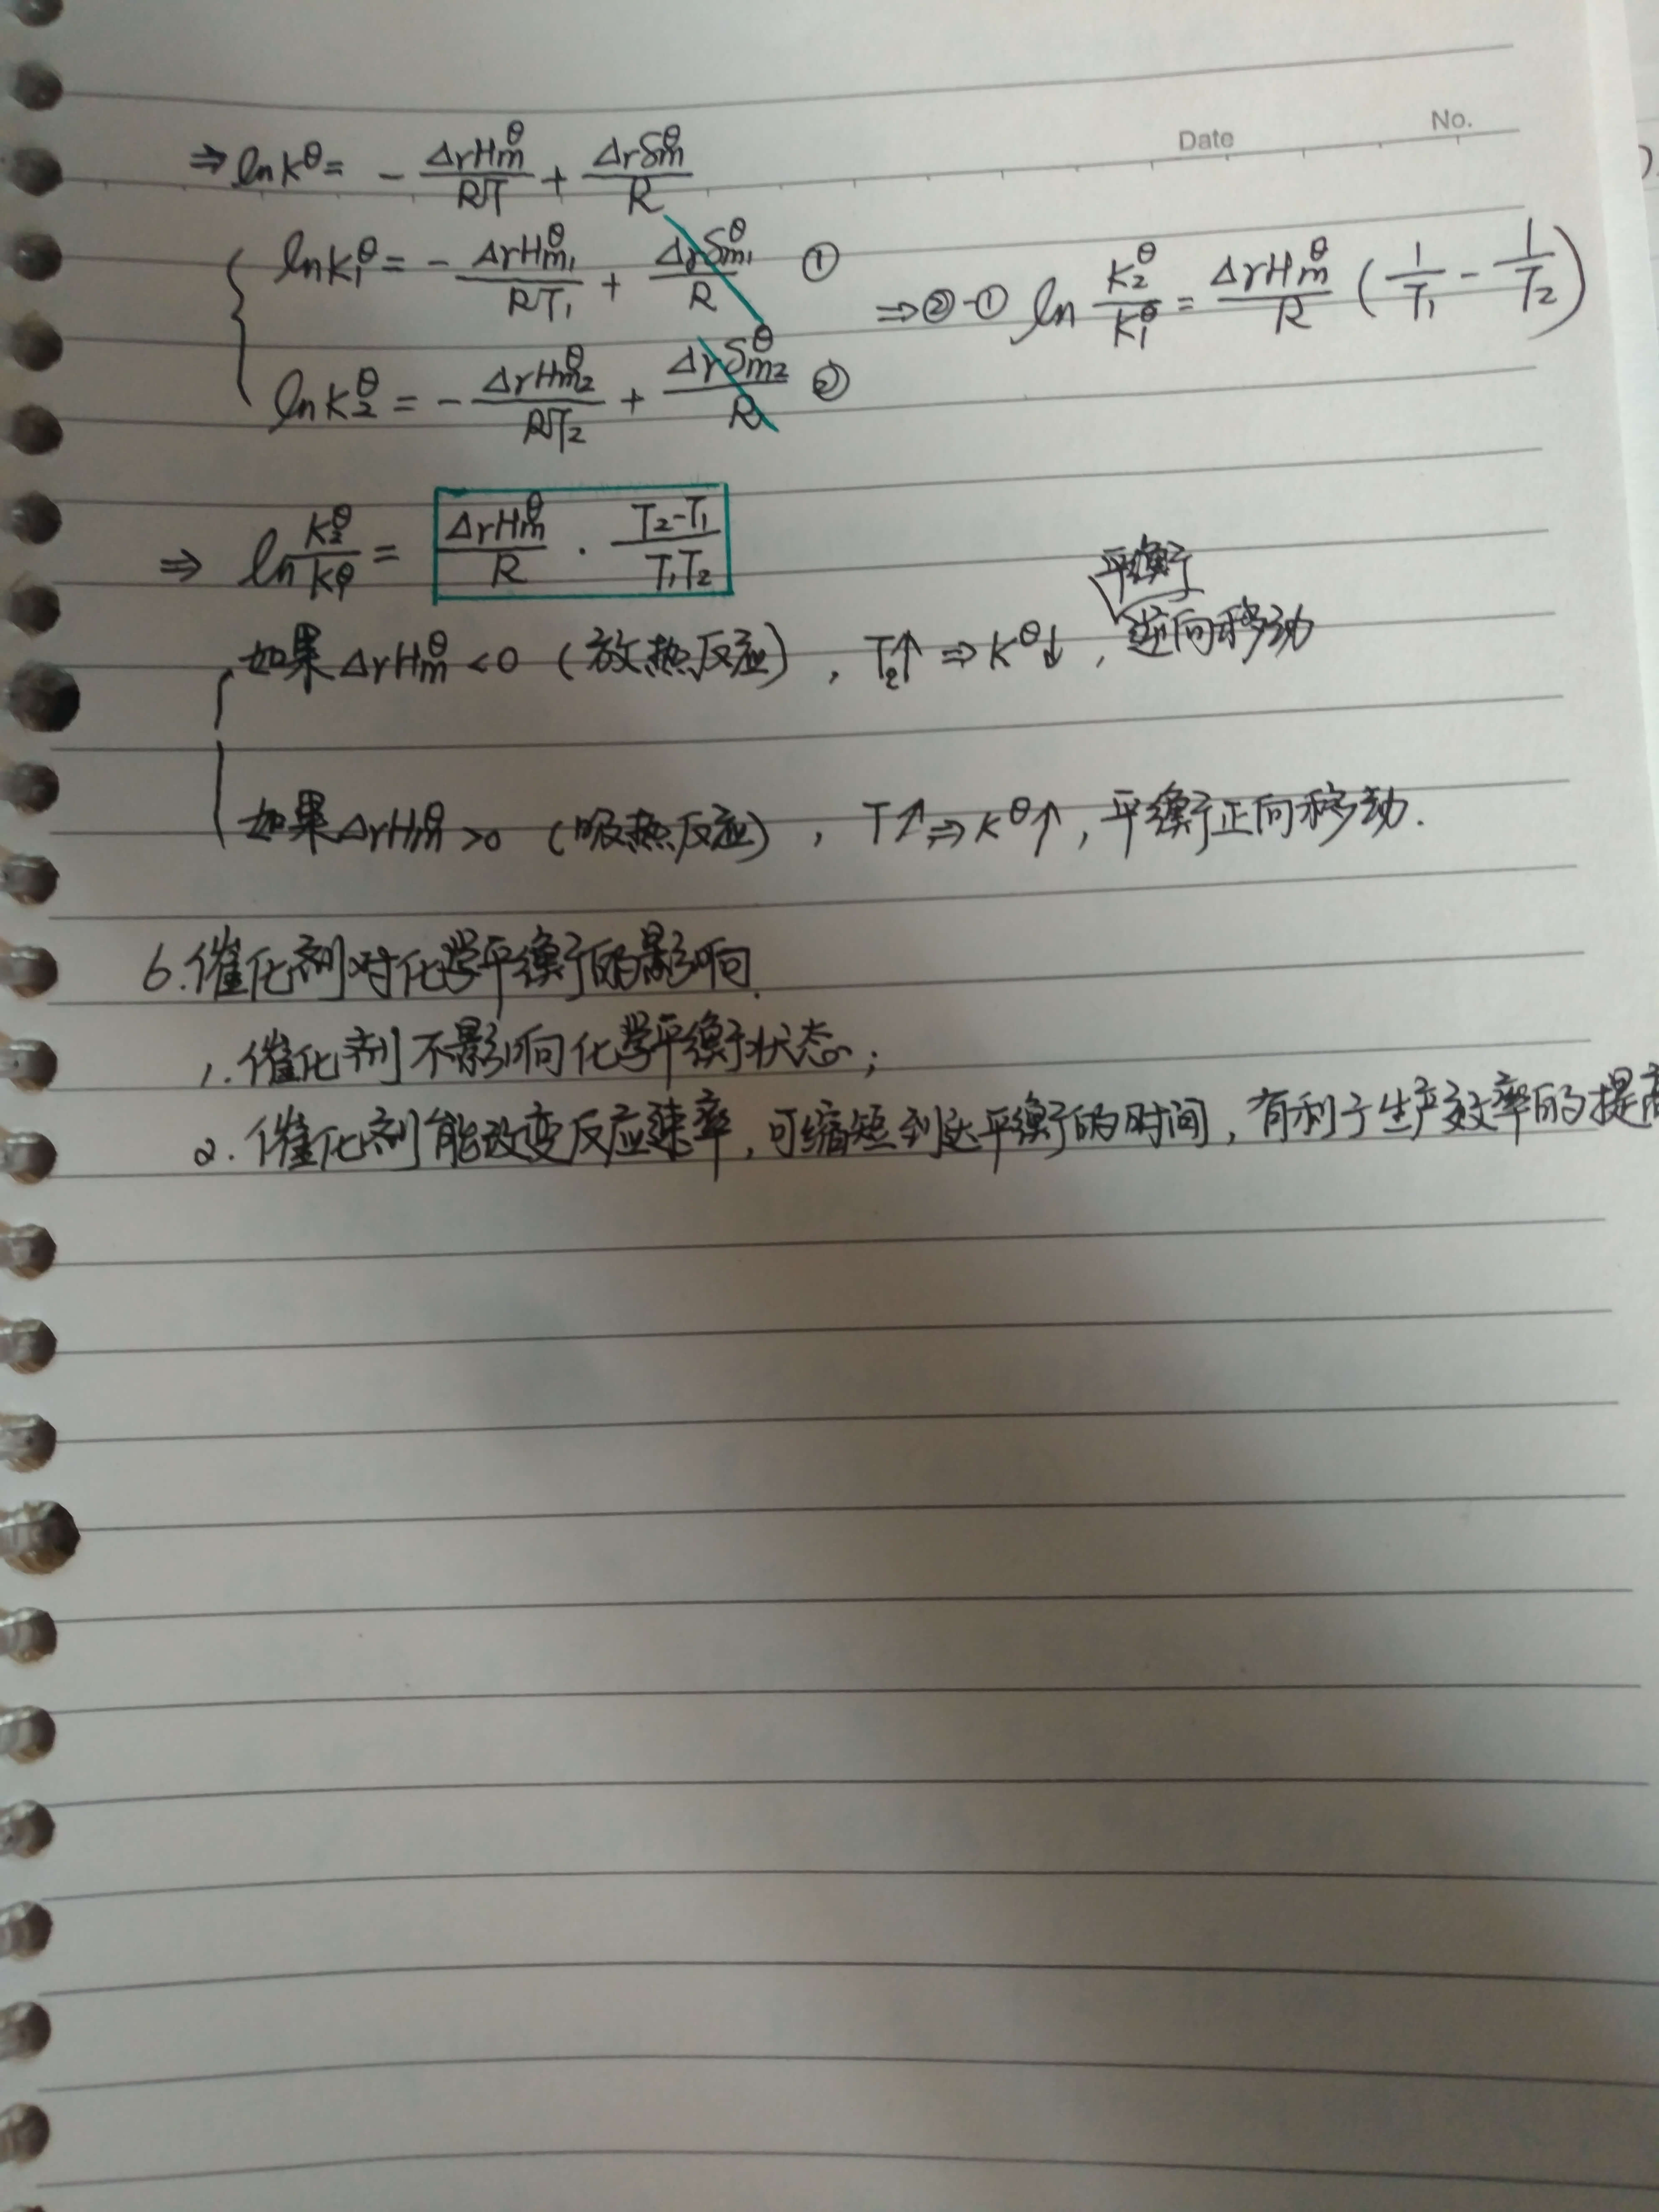 Date No.
⇒ lnK^θ = - ΔrHm^θ/RT + ΔrSm^θ/R
lnK₁^θ = - ΔrHm₁^θ/RT₁ + ΔrSm₁^θ/R ①
⇒②-① ln K₂^θ/K₁^θ = ΔrHm^θ/R (1/T₁ - 1/T₂)
lnK₂^θ = - ΔrHm₂^θ/RT₂ + ΔrSm₂^θ/R ②
⇒ ln K₂^θ/K₁^θ = ΔrHm^θ/R · T₂-T₁/T₁T₂
如果ΔrHm^θ<0 (放热反应), T₂↑ ⇒ K^θ↓, 平衡逆向移动
如果ΔrHm^θ>0 (吸热反应), T↑⇒K^θ↑, 平衡正向移动.
6.催化剂对化学平衡的影响.
1.催化剂不影响化学平衡状态;
2.催化剂能改变反应速率,可缩短到达平衡的时间,有利于生产效率的提高